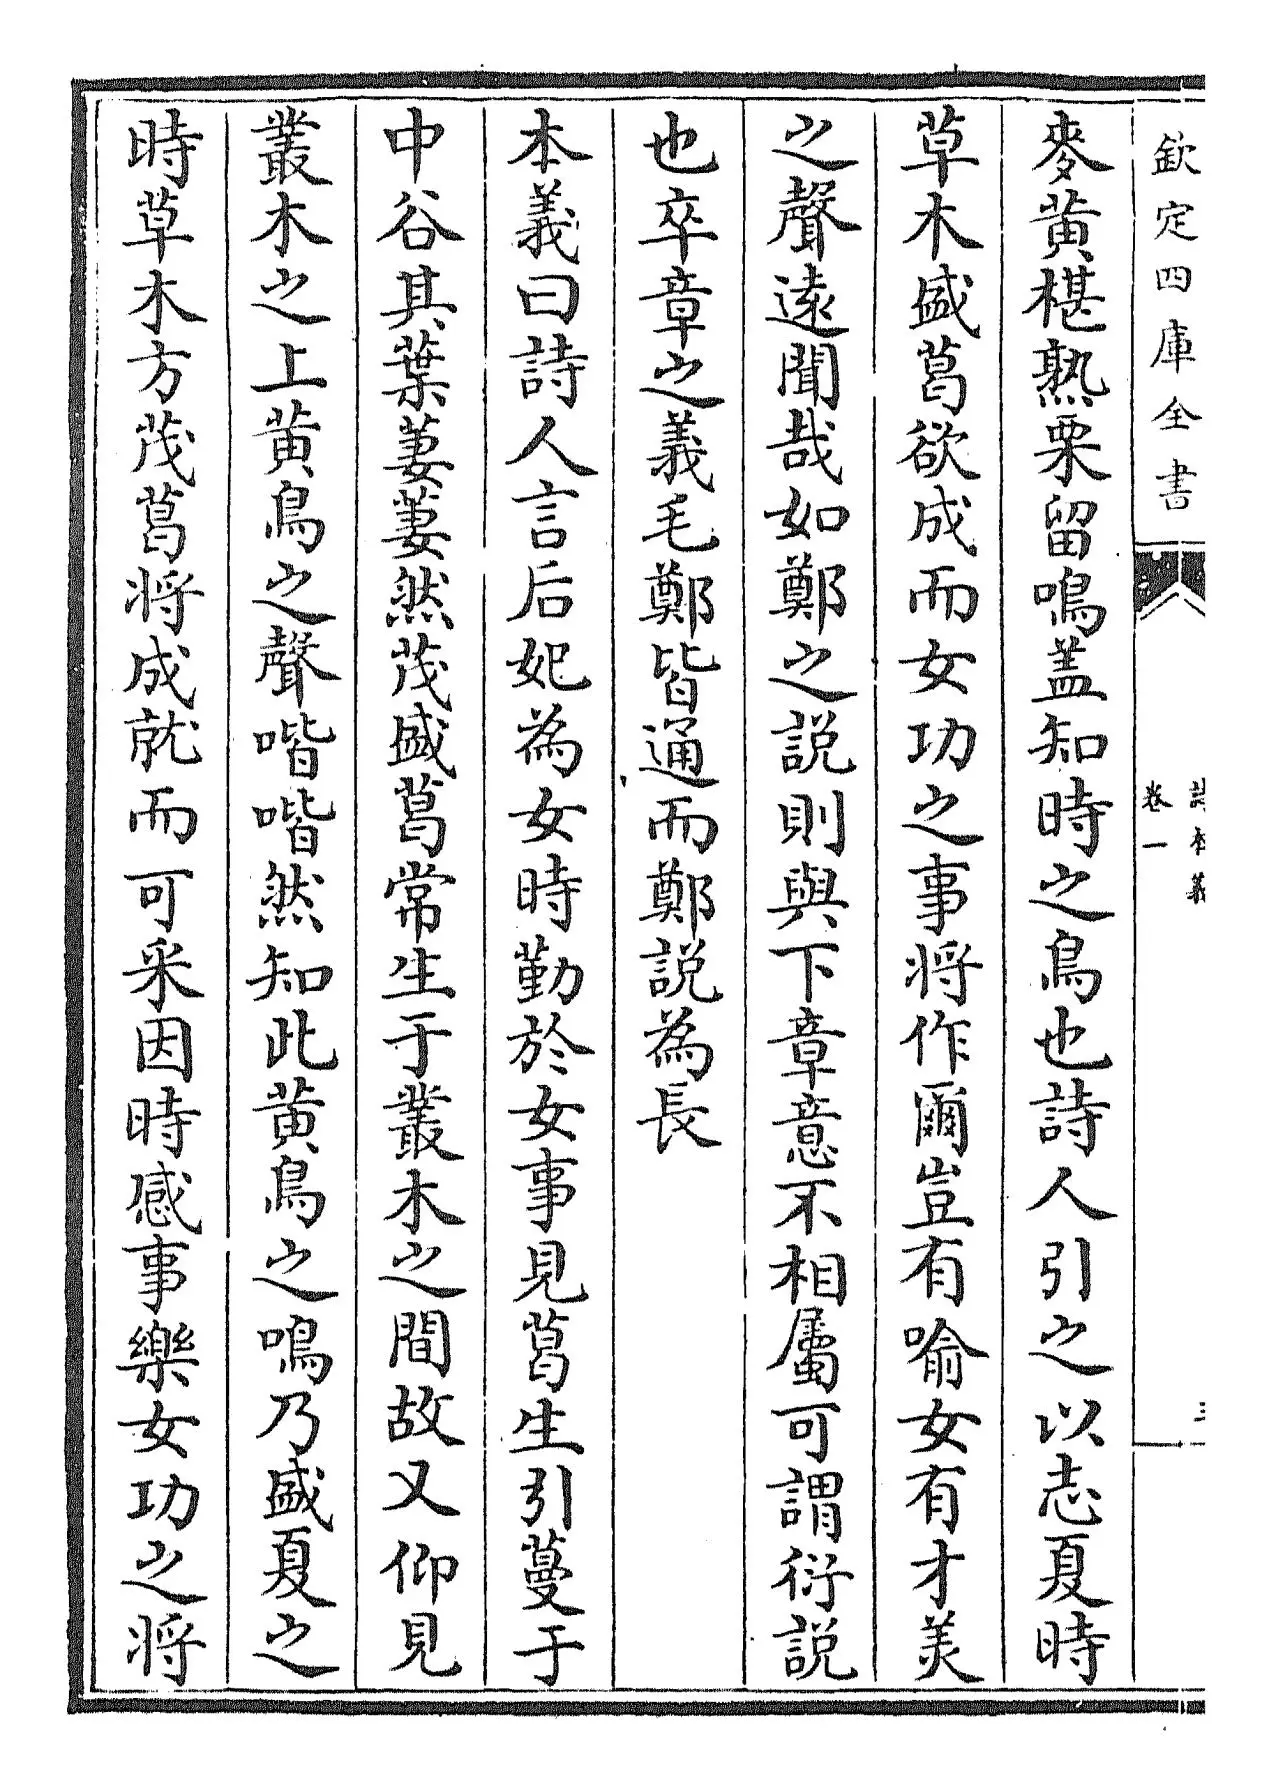 欽定四庫全書
詩本義
卷一
三
麥黃椹熟栗留鳴蓋知時之鳥也詩人引之以志夏時
草木盛葛欲成而女功之事將作爾豈有喻女有才美
之聲遠聞哉如鄭之說則與下章意不相屬可謂衍說
也卒章之義毛鄭皆通而鄭說為長
本義曰詩人言后妃為女時勤於女事見葛生引蔓于
中谷其葉萋萋然茂盛葛常生于叢木之間故又仰見
叢木之上黃鳥之聲喈喈然知此黃鳥之鳴乃盛夏之
時草木方茂葛將成就而可采因時感事樂女功之將